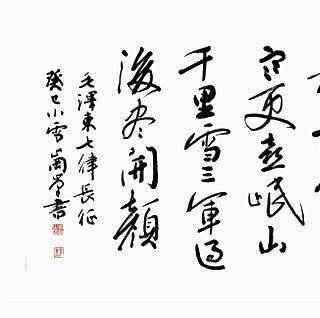 更喜岷山
千里雪三軍過
後盡開顏
毛澤東七律長征
癸巳小雪蘭亭書